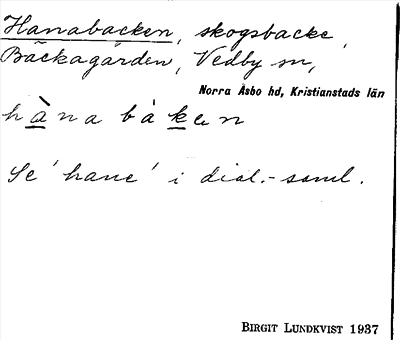 Hanabacken, skogsbacke,
Bäckagården, Vedby sn,
Norra Åsbo hd, Kristianstads län
hà̱na bá ḵen
Se 'hane' i dial.-saml.
BIRGIT LUNDKVIST 1937